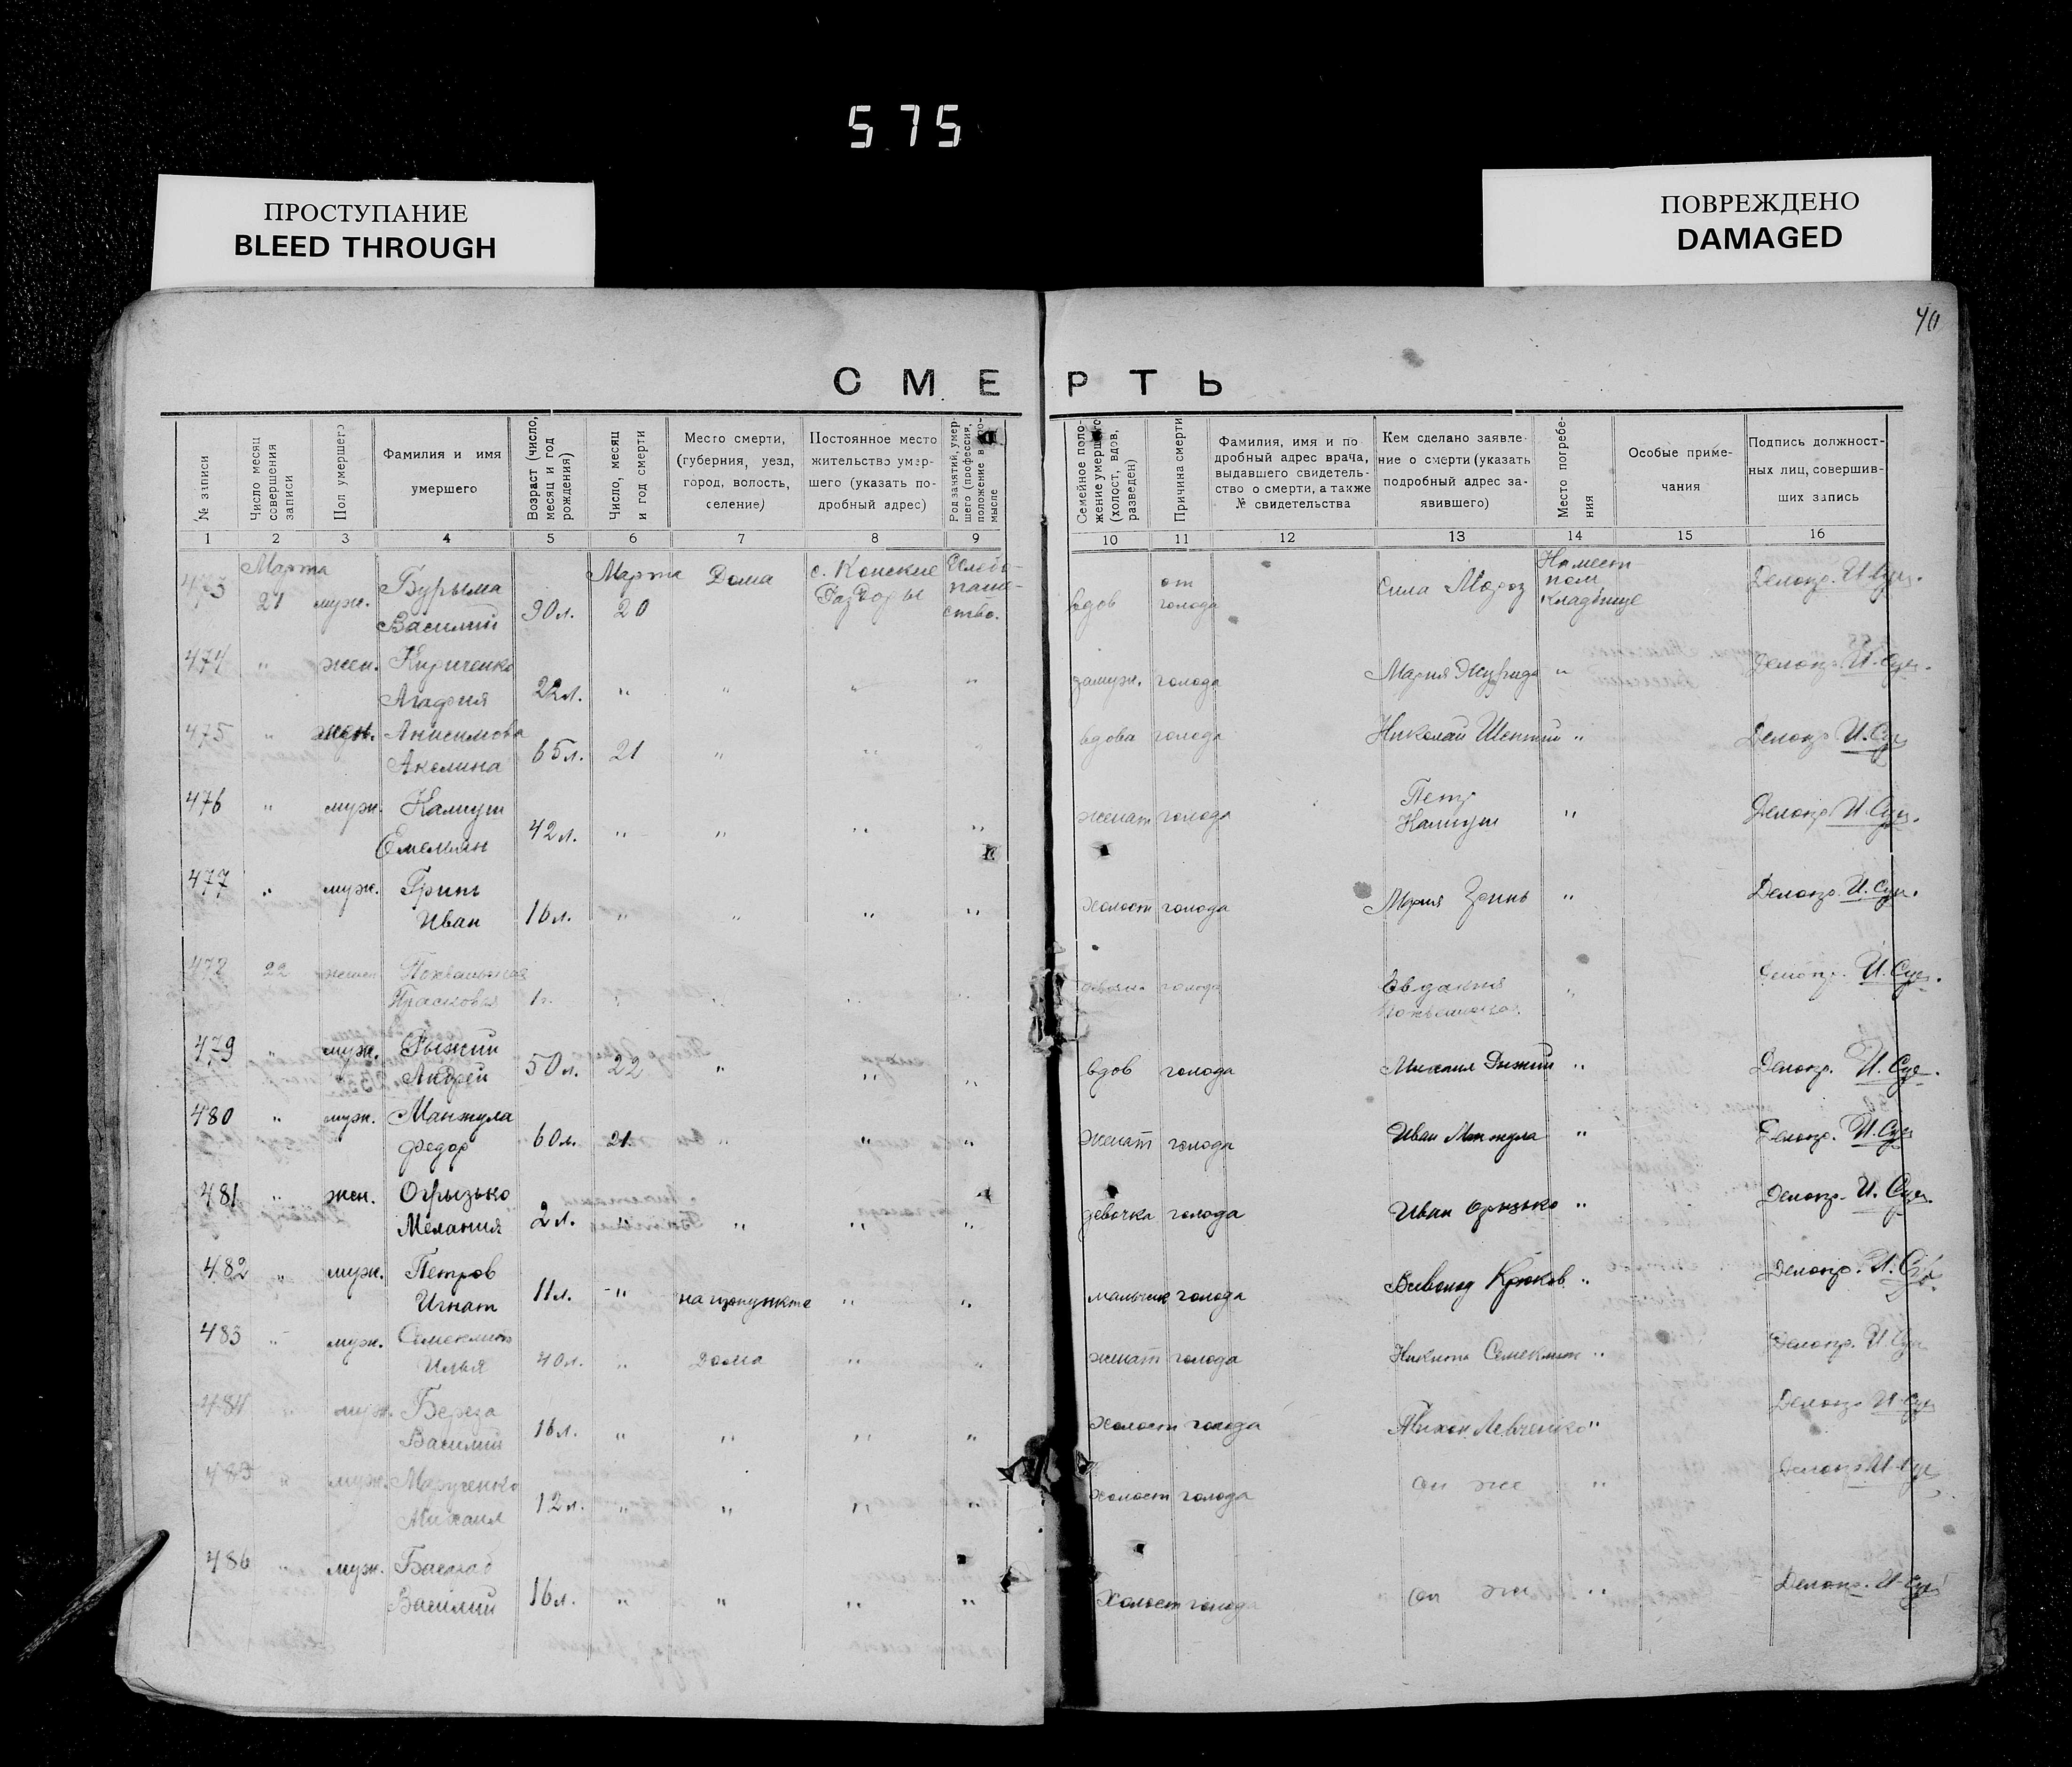 575
ПРОСТУПАНИЕ
BLEED THROUGH
ПОВРЕЖДЕНО
DAMAGED
СМЕРТЬ
№ записи
Число месяц совершения записи
Пол умершего
Фамилия и имя умершего
Возраст (число, месяц и год рождения)
Число, месяц и год смерти
Место смерти, (губерния, уезд, город, волость, селение)
Постоянное место жительство умершего (указать подробный адрес)
Род занятий, умершего (профессия, положение в промысле
Семейное положение умершего (холост, вдов, разведен)
Причина смерти
Фамилия, имя и подробный адрес врача, выдавшего свидетельство о смерти, а также № свидетельства
Кем сделано заявление о смерти (указать подробный адрес заявившего)
Место погребения
Особые примечания
Подпись должностных лиц, совершивших запись
1 2 3 4 5 6 7 8 9 10 11 12 13 14 15 16
473 Марта 21 муж. Бурыма Василий 90 л. Марта 20 Дома с. Конские Раздоры вдов от голода Сила Мороз На местном кладбище Делопр. И. Сун.
474 " жен. Кириченко Агафия 22 л. " " " " замуж. голода Мария " Делопр. И. Сун.
475 " жен. Анисимова Акелина 65 л. 21 " " " вдова голода Николай " Делопр. И. Сун.
476 " муж. Калиуш Емельян 42 л. " " " " женат голода Петр Калиуш " Делопр. И. Сун.
477 " муж. Гринь Иван 16 л. " " " " холост голода Мария Гринь " Делопр. И. Сун.
478 22 жен. Похвальная Прасковья 1 г. " " " " голода Евдокия Похвальная " Делопр. И. Сун.
479 " муж. Рыжий Андрей 50 л. 22 " " " вдов голода Михаил Рыжий " Делопр. И. Сун.
480 " муж. Манжула Федор 60 л. 21 " " " женат голода Иван Манжула " Делопр. И. Сун.
481 " жен. Огрызько Мелания 2 л. " " " " девочка голода Иван Огрызько " Делопр. И. Сун.
482 " муж. Петров Игнат 11 л. " на " " мальчик голода Крюков " Делопр. И. Сун.
483 " муж. Илья 40 л. " Дома " " женат голода Никита " Делопр. И. Сун.
484 " муж. Береза Василий 16 л. " " " " холост голода Тихон Левченко " Делопр. И. Сун.
485 " муж. Марученко Михаил 12 л. " " " " холост голода он же " Делопр. И. Сун.
486 " муж. Василий 16 л. " " " " холост голода он же " Делопр. И. Сун.